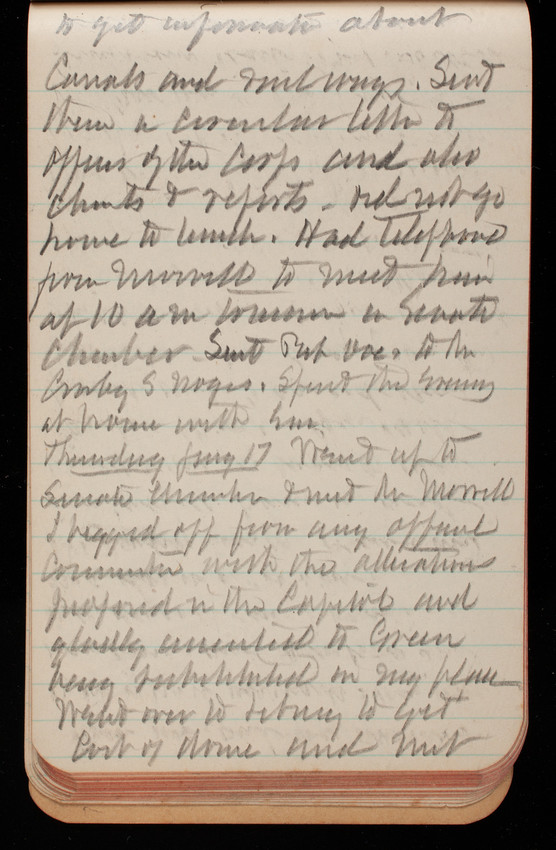 to get information about
Canals and railways. Sent
them a circular letter to
officers of the Corps and also
charts & reports. Did not go
home to lunch. Had telephone
from Morrill to meet him
at 10 a m tomorrow in Senate
Chamber Sent Pub Doc. to Mr
Crosby S Noyes. Spent the Evening
at home with
Thursday Jany 17 Went up to
Senate Chamber & met Mr Morrill
I begged off from any official
connection with the alterations
proposed in the Capitol and
gladly consented to Green
being substituted in my place
Went over to library to get
Cost of dome and met